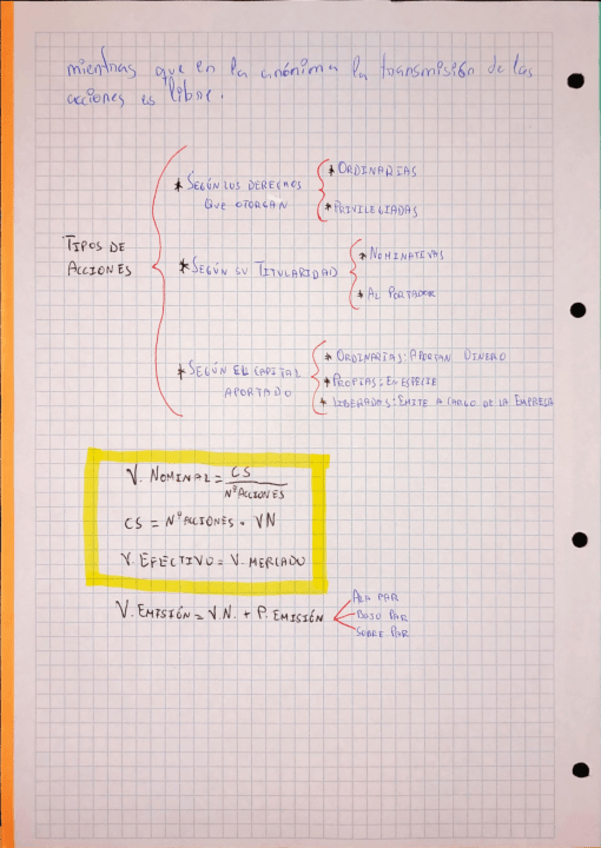 mientras que en la anónima la transmisión de las
acciones es libre.
TIPOS DE
ACCIONES
* SEGÚN LOS DERECHOS
QUE OTORGAN
* ORDINARIAS
* PRIVILEGIADAS
* SEGÚN SU TITULARIDAD
* NOMINATIVAS
* AL PORTADOR
* SEGÚN EL CAPITAL
APORTADO
* ORDINARIAS: APORTAN DINERO
* PROPIAS: EN ESPECIE
* LIBERADOS: EMITE A CARGO DE LA EMPRESA
V. NOMINAL = CS / Nº ACCIONES
CS = Nº ACCIONES · VN
V. EFECTIVO = V. MERCADO
V. EMISIÓN = V.N. + P. EMISIÓN
A LA PAR
BAJO PAR
SOBRE PAR